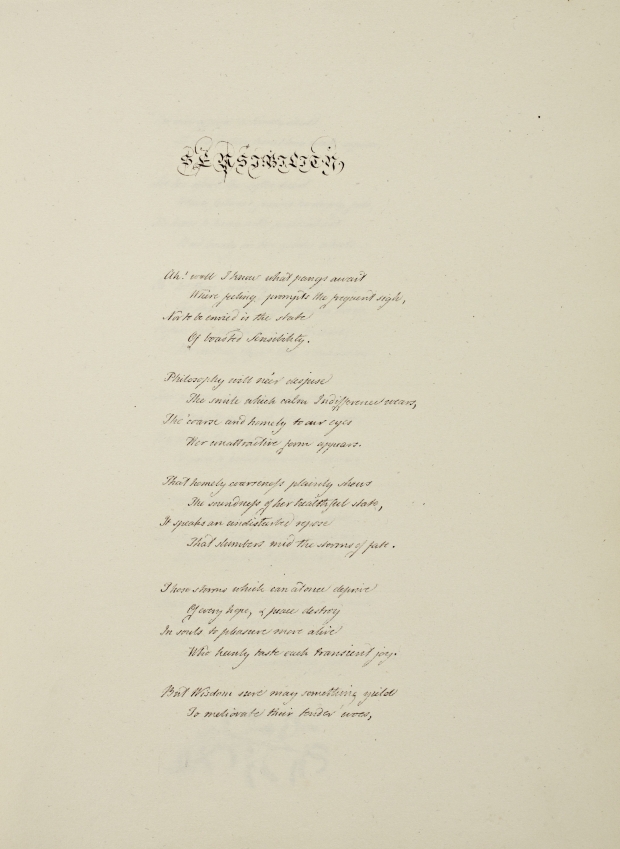 SENSIBILITY,
Ah! well I know what pangs await
Where feeling, prompts the frequent sigh,
Nor to be envied is the state
Of boasted Sensibility.
Philosophy will ne'er
The smile which calm Indifference wears,
Tho' coarse and homely to our eyes
Her unattractive form appears.
That homely coarseness plainly shews
The soundness of her healthful state,
It speaks an undisturbed repose
That slumbers mid the storms of fate.
Those storms which can at once deprive
Of every hope, & peace destroy
In souls to pleasure more alive
Who keenly taste each transient joy.
But Wisdom sure may something yield
To meliorate their tender woes,